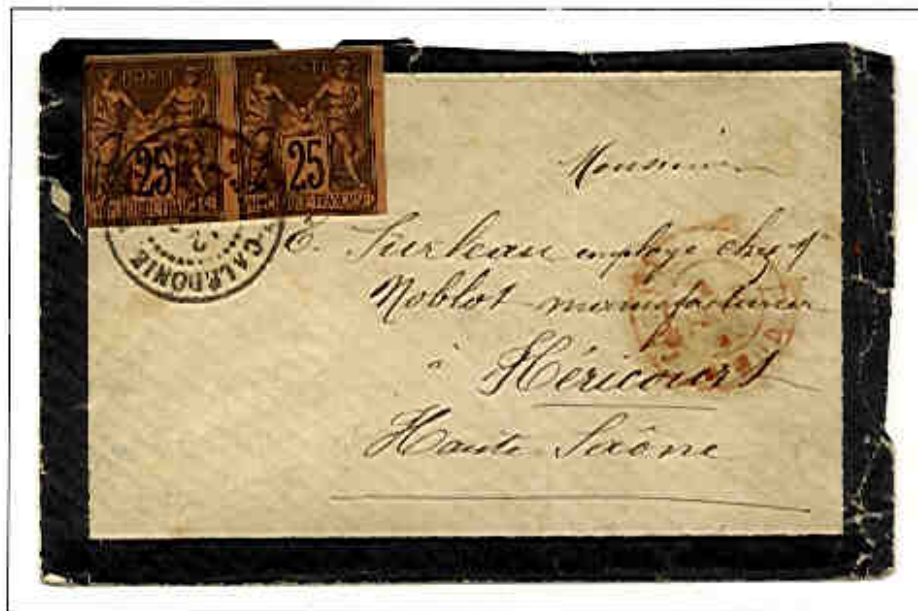 25 25
CALEDONIE
Monsieur
E. Surleau employé chez Mr
Noblot manufacturier
à Héricourt
Haute Saône